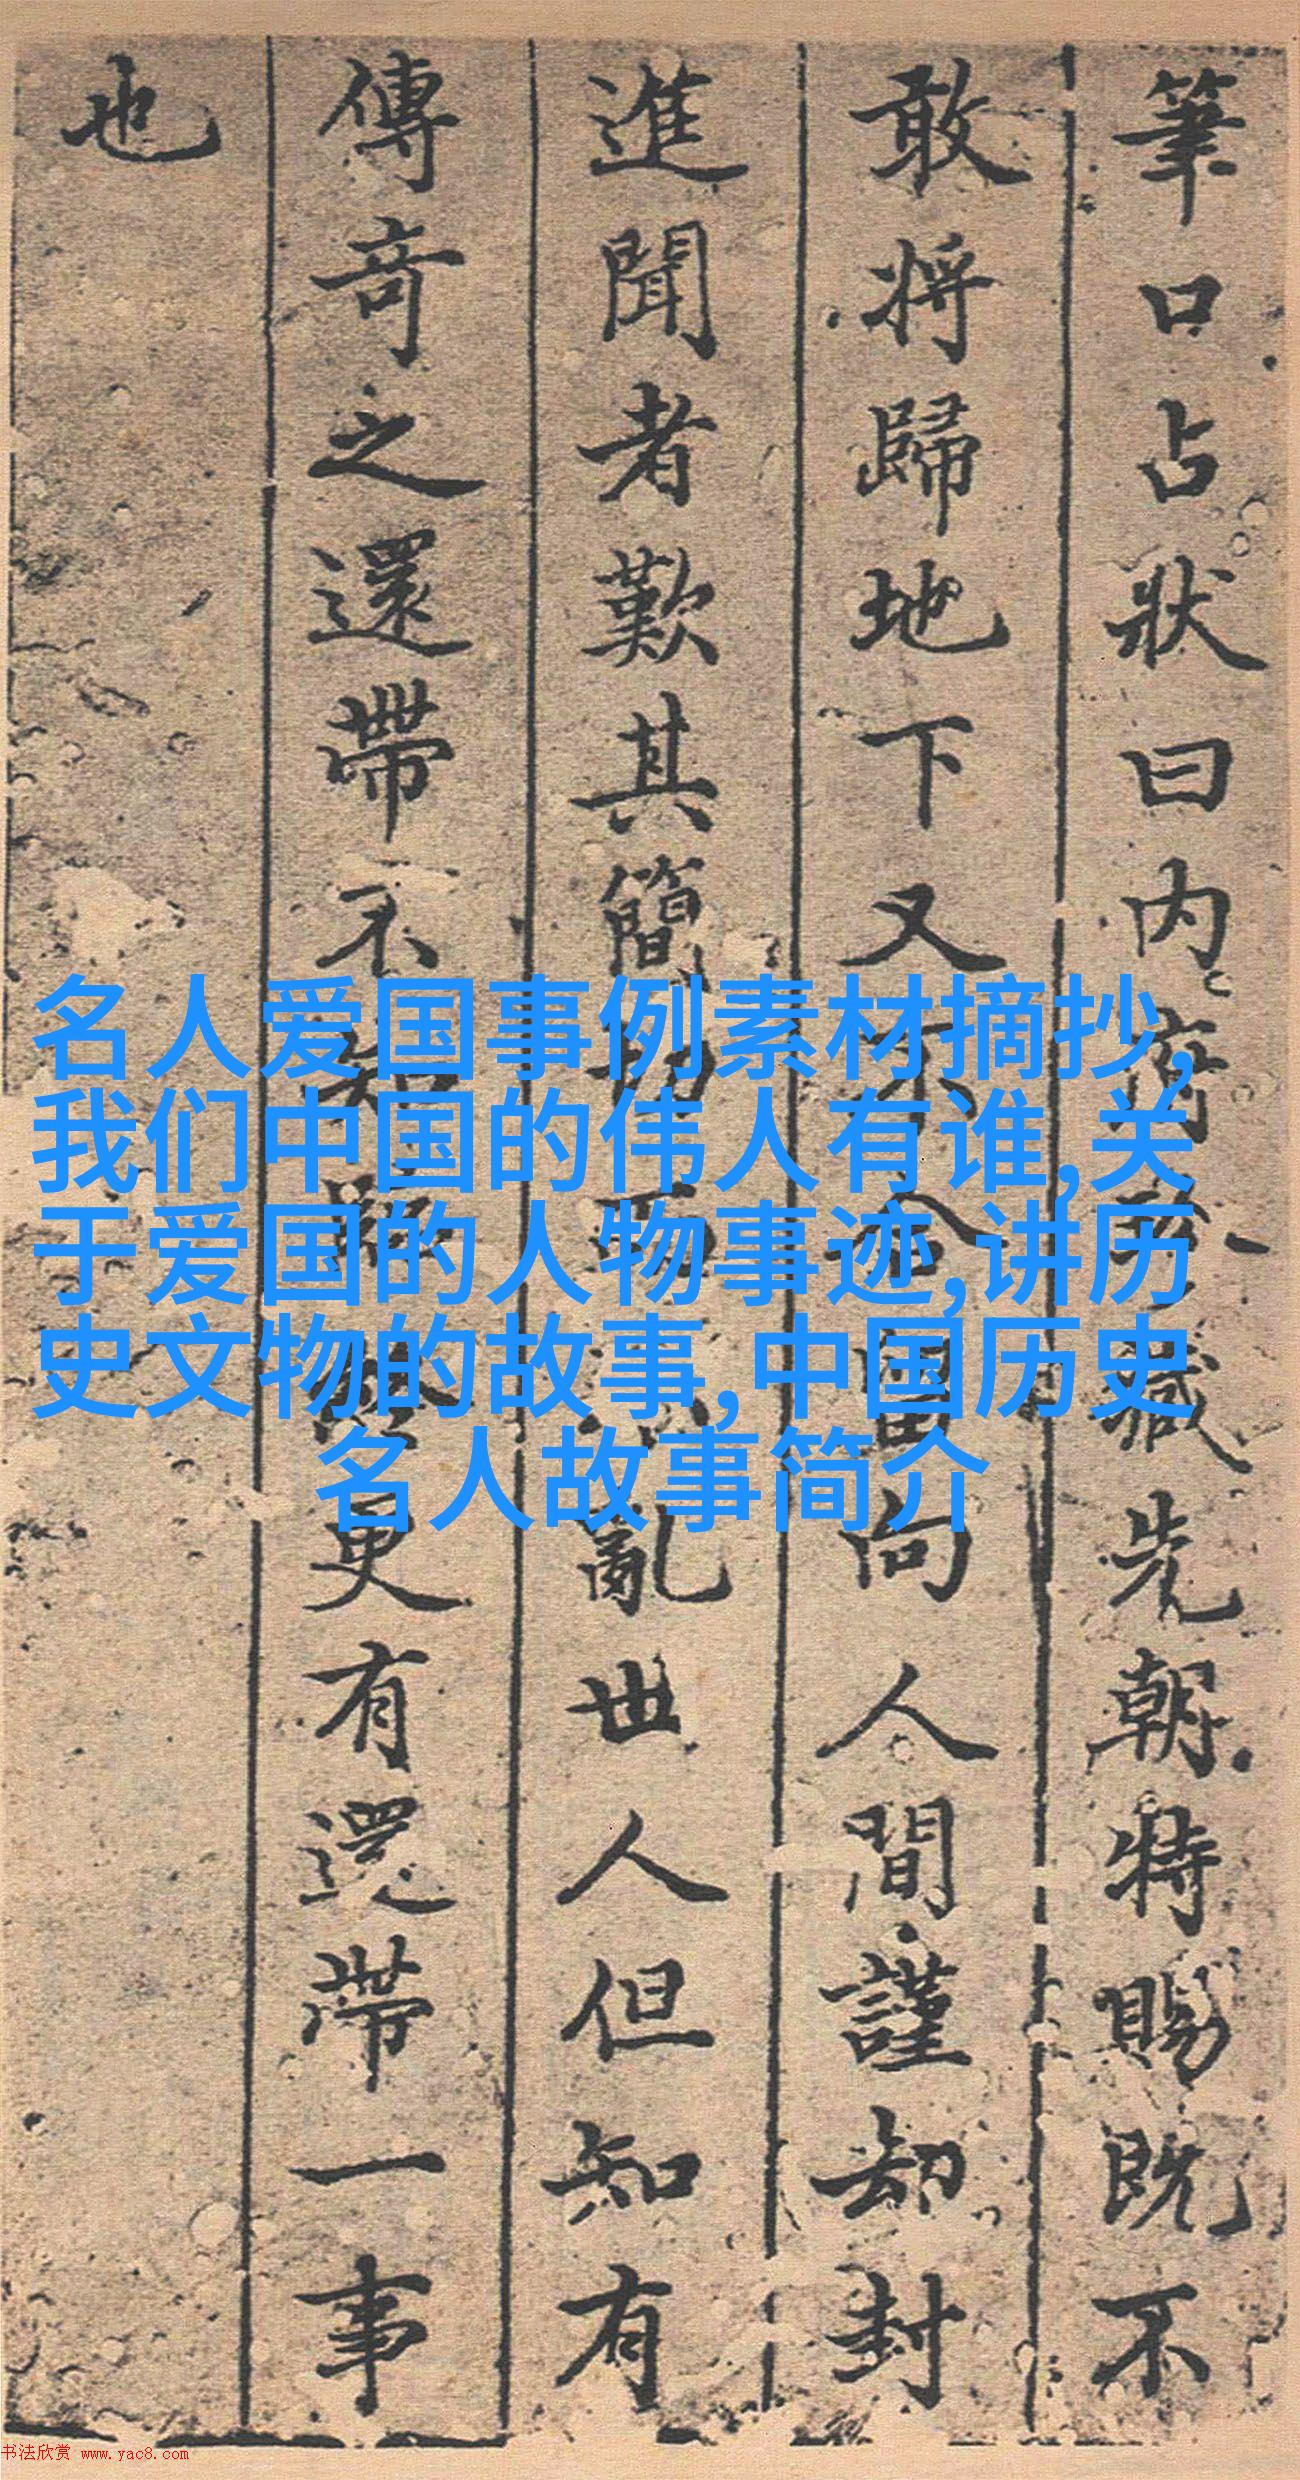 筆口占狀曰内府藏先朝特賜既不
敢將歸地下又不合留向人間謹却封
進聞者歎其簡切而不亂世人但知有
傳奇之還帶不知更有還帶一事
也
名人爱国事例素材摘抄,
我们中国的伟人有谁,关
于爱国的人物事迹,讲历
史文物的故事,中国历史
名人故事简介
书法欣赏 www.yac8.com